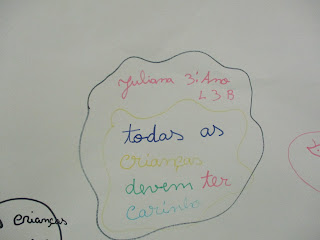 Juliana 3º Ano
L 3 B
todas as
crianças
devem ter
carinho
crianças